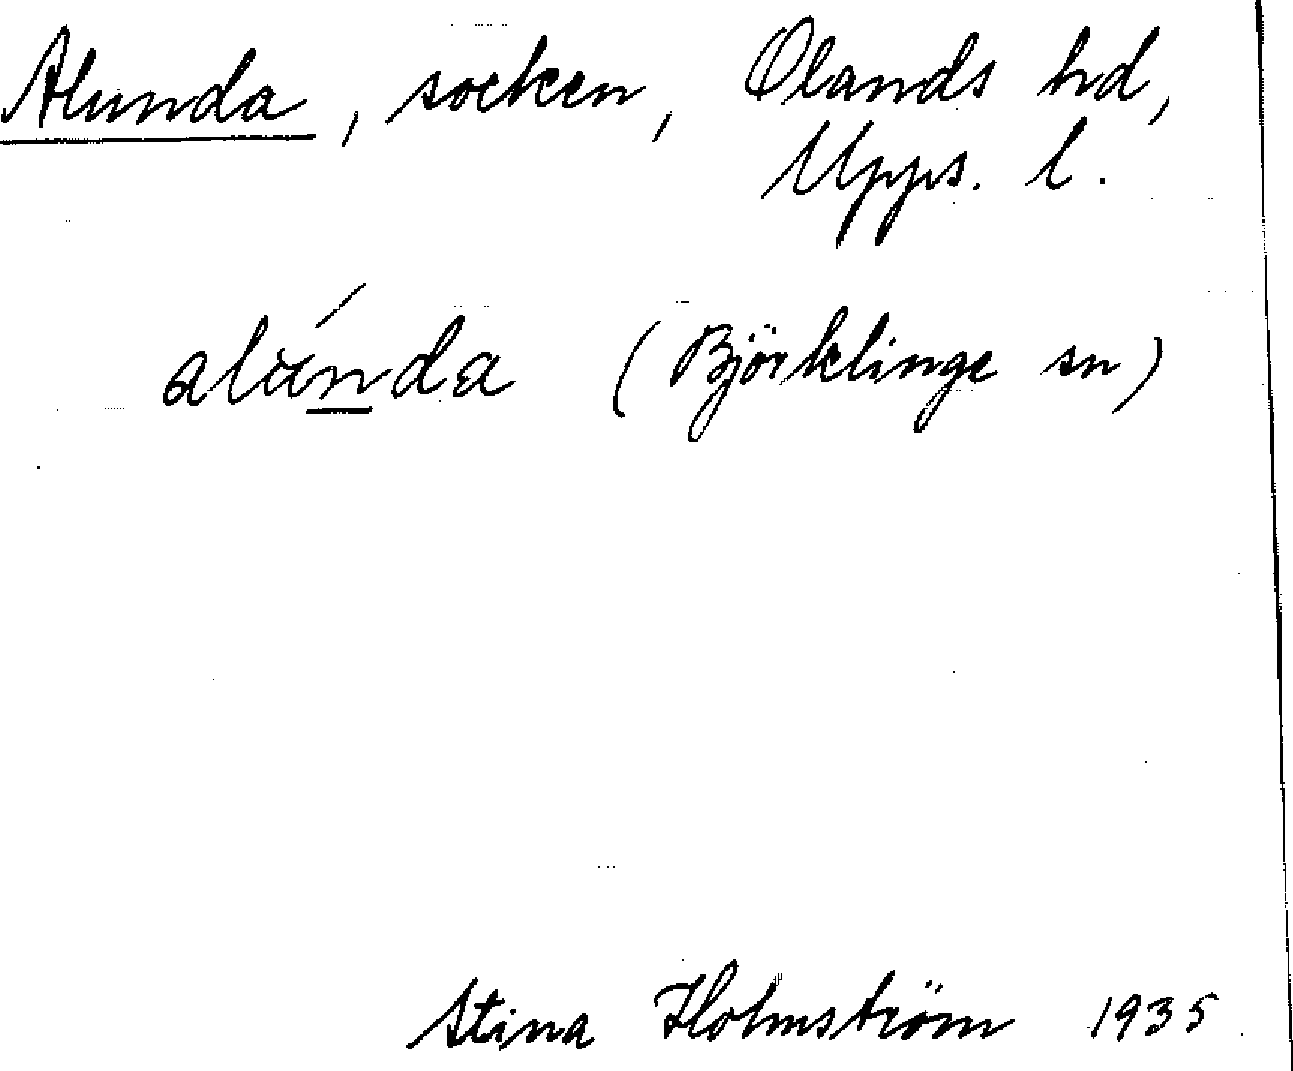 Alunda, socken, Olands hd,
Upps. l.
alúnda (Björklinge sn)
Stina Holmström 1935